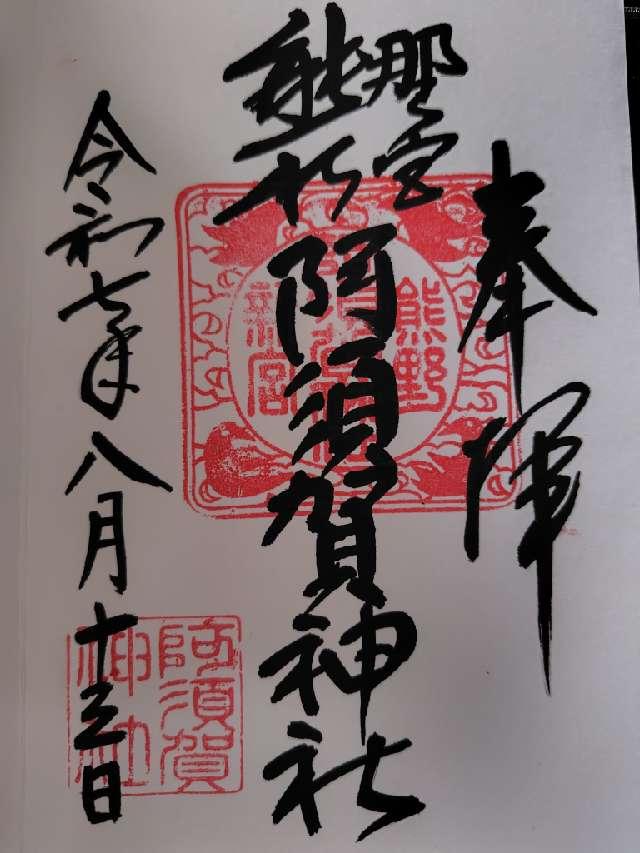 奉拝
熊野
新宮
阿須賀神社
令和七年八月十三日
熊野
新宮
阿須賀
神社